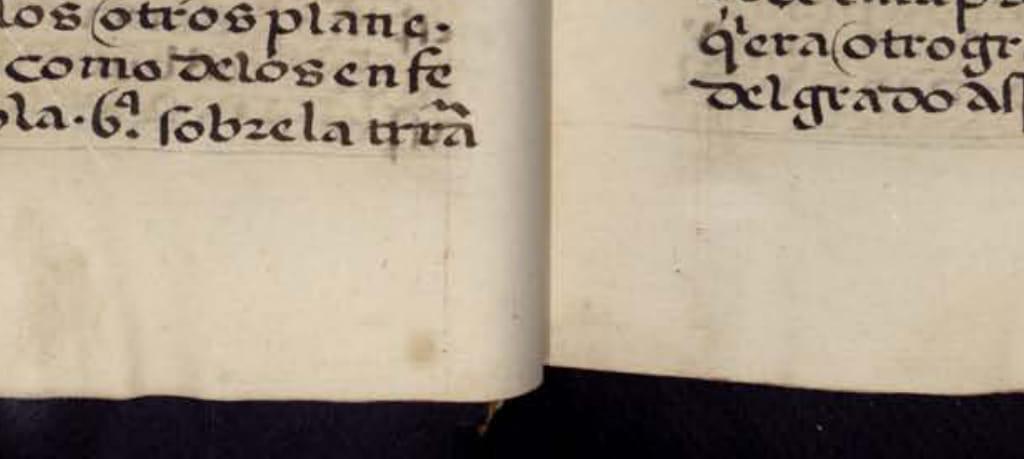 los otros plane.
como delos en fe
la. 6ª. sobre la
q'era otro gr
del grado as